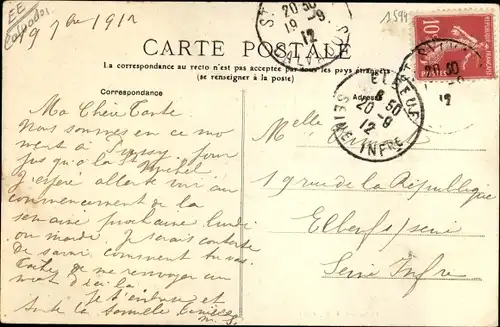 EE
Calvados
19 7bre 1912
1594
20 50
19 - 9
12
CALVADOS
10
REPUBLIQUE FRANÇAISE
POSTES
20 50
12
CARTE POSTALE
La correspondance au recto n'est pas acceptée par tous les pays étrangers
(se renseigner à la poste)
Correspondance
Adresse
ELBEUF
8 50
20 - 9
12
SEINE INFRE
Ma Chère Tante
Nous sommes en ce mo
ment à pour
jus qu'à la St Michel
J'espère aller te voir au
commencement de la
semaine prochaine lundi
ou mardi. Je serais contente
De savoir comment tu vas.
Tâche de me renvoyer un
mot d'ici là
Je t'embrasse et
toute la famille
Melle
19 rue de la République
Elbeuf s/ seine
Seine Infre